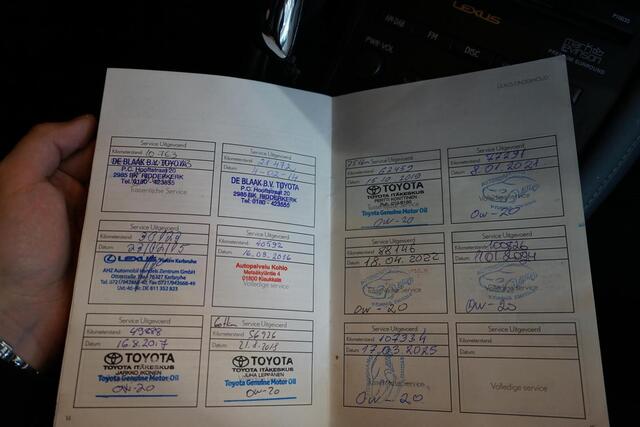 LEXUS
AM·SAB
FM
DISC
PWR·VOL
Mark Levinson
PREMIUM SURROUND
Service Uitgevoerd
Kilometerstand 10 763
DE BLAAK B.V. TOYOTA
P.C. Hooftstraat 20
2985 BK RIDDERKERK
Tel. 0180 - 423555
Tussentijdse Service
Service Uitgevoerd
Kilometerstand 21 472
Datum
DE BLAAK B.V. TOYOTA
P.C. Hooftstraat 20
2985 BK RIDDERKERK
Tel. 0180 - 423555
Service Uitgevoerd
Kilometerstand
Datum
LEXUS Forum Karlsruhe
AHZ Automobil Handels Zentrum GmbH
Ottostraße 76227 Karlsruhe
Service Uitgevoerd
40592
Datum 16.09.2016
Autopalvelu Kohlo
01800 Klaukkala
Volledige service
Service Uitgevoerd
Kilometerstand 49888
Datum 16.8.2017
TOYOTA
TOYOTA ITÄKESKUS
JARKKO IKONEN
Toyota Genuine Motor Oil
0W-20
Service Uitgevoerd
Kilometerstand 56926
Datum 21.8.2018
TOYOTA
TOYOTA ITÄKESKUS
JUHA LEPPÄNEN
Toyota Genuine Motor Oil
0W-20
Service Uitgevoerd
Kilometerstand
Datum 15.10.2019
TOYOTA
TOYOTA ITÄKESKUS
PERTTI KONTTINEN
Toyota Genuine Motor Oil
0W-20
Service Uitgevoerd
Kilometerstand 77291
Datum 8.01.2021
0W-20
Service Uitgevoerd
Kilometerstand 88146
Datum 18.04.2022
0W-20
Service Uitgevoerd
Kilometerstand 100826
Datum
Volledige service
0W-20
Service Uitgevoerd
Kilometerstand 107334
Datum 17.03.2025
0W-20
Service Uitgevoerd
Kilometerstand
Datum
Volledige service